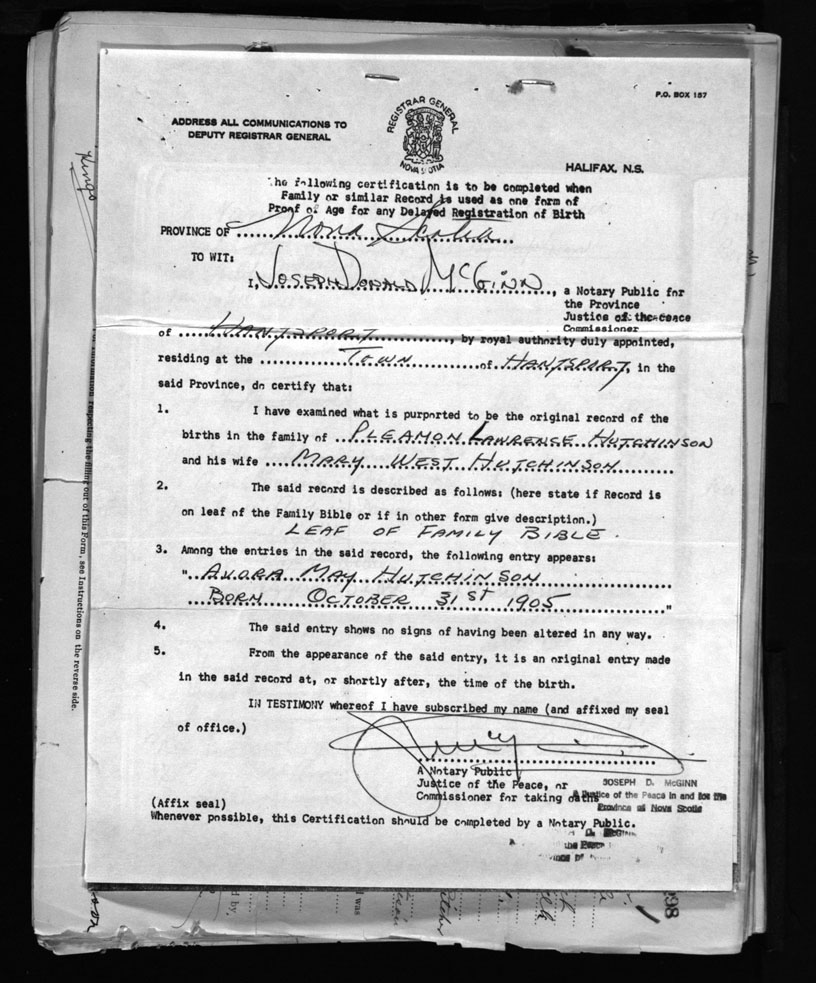 P.O. BOX 157
ADDRESS ALL COMMUNICATIONS TO
DEPUTY REGISTRAR GENERAL
REGISTRAR GENERAL
NOVA SCOTIA
HALIFAX, N.S.
Kings
The following certification is to be completed when
Family or similar Record is used as one form of
Proof of Age for any Delayed Registration of Birth
PROVINCE OF Nova Scotia
TO WIT:
I, JOSEPH DONALD McGINN, a Notary Public for
the Province
Justice of the Peace
Commissioner
of HANTSPORT, by royal authority duly appointed,
residing at the TOWN of HANTSPORT, in the
said Province, do certify that:
1. I have examined what is purported to be the original record of the
births in the family of PLEAMON LAWRENCE HUTCHINSON
and his wife MARY WEST HUTCHINSON
2. The said record is described as follows: (here state if Record is
on leaf of the Family Bible or if in other form give description.)
LEAF OF FAMILY BIBLE.
3. Among the entries in the said record, the following entry appears:
" AVORA MAY HUTCHINSON
BORN OCTOBER 31st 1905 "
4. The said entry shows no signs of having been altered in any way.
5. From the appearance of the said entry, it is an original entry made
in the said record at, or shortly after, the time of the birth.
IN TESTIMONY whereof I have subscribed my name (and affixed my seal
of office.)
A Notary Public
Justice of the Peace, or
Commissioner for taking oaths
JOSEPH D. McGINN
A Justice of the Peace in and for the
Province of Nova Scotia
(Affix seal)
Whenever possible, this Certification should be completed by a Notary Public.
respecting the filling out of this Form, see Instructions on the reverse side.
was
by